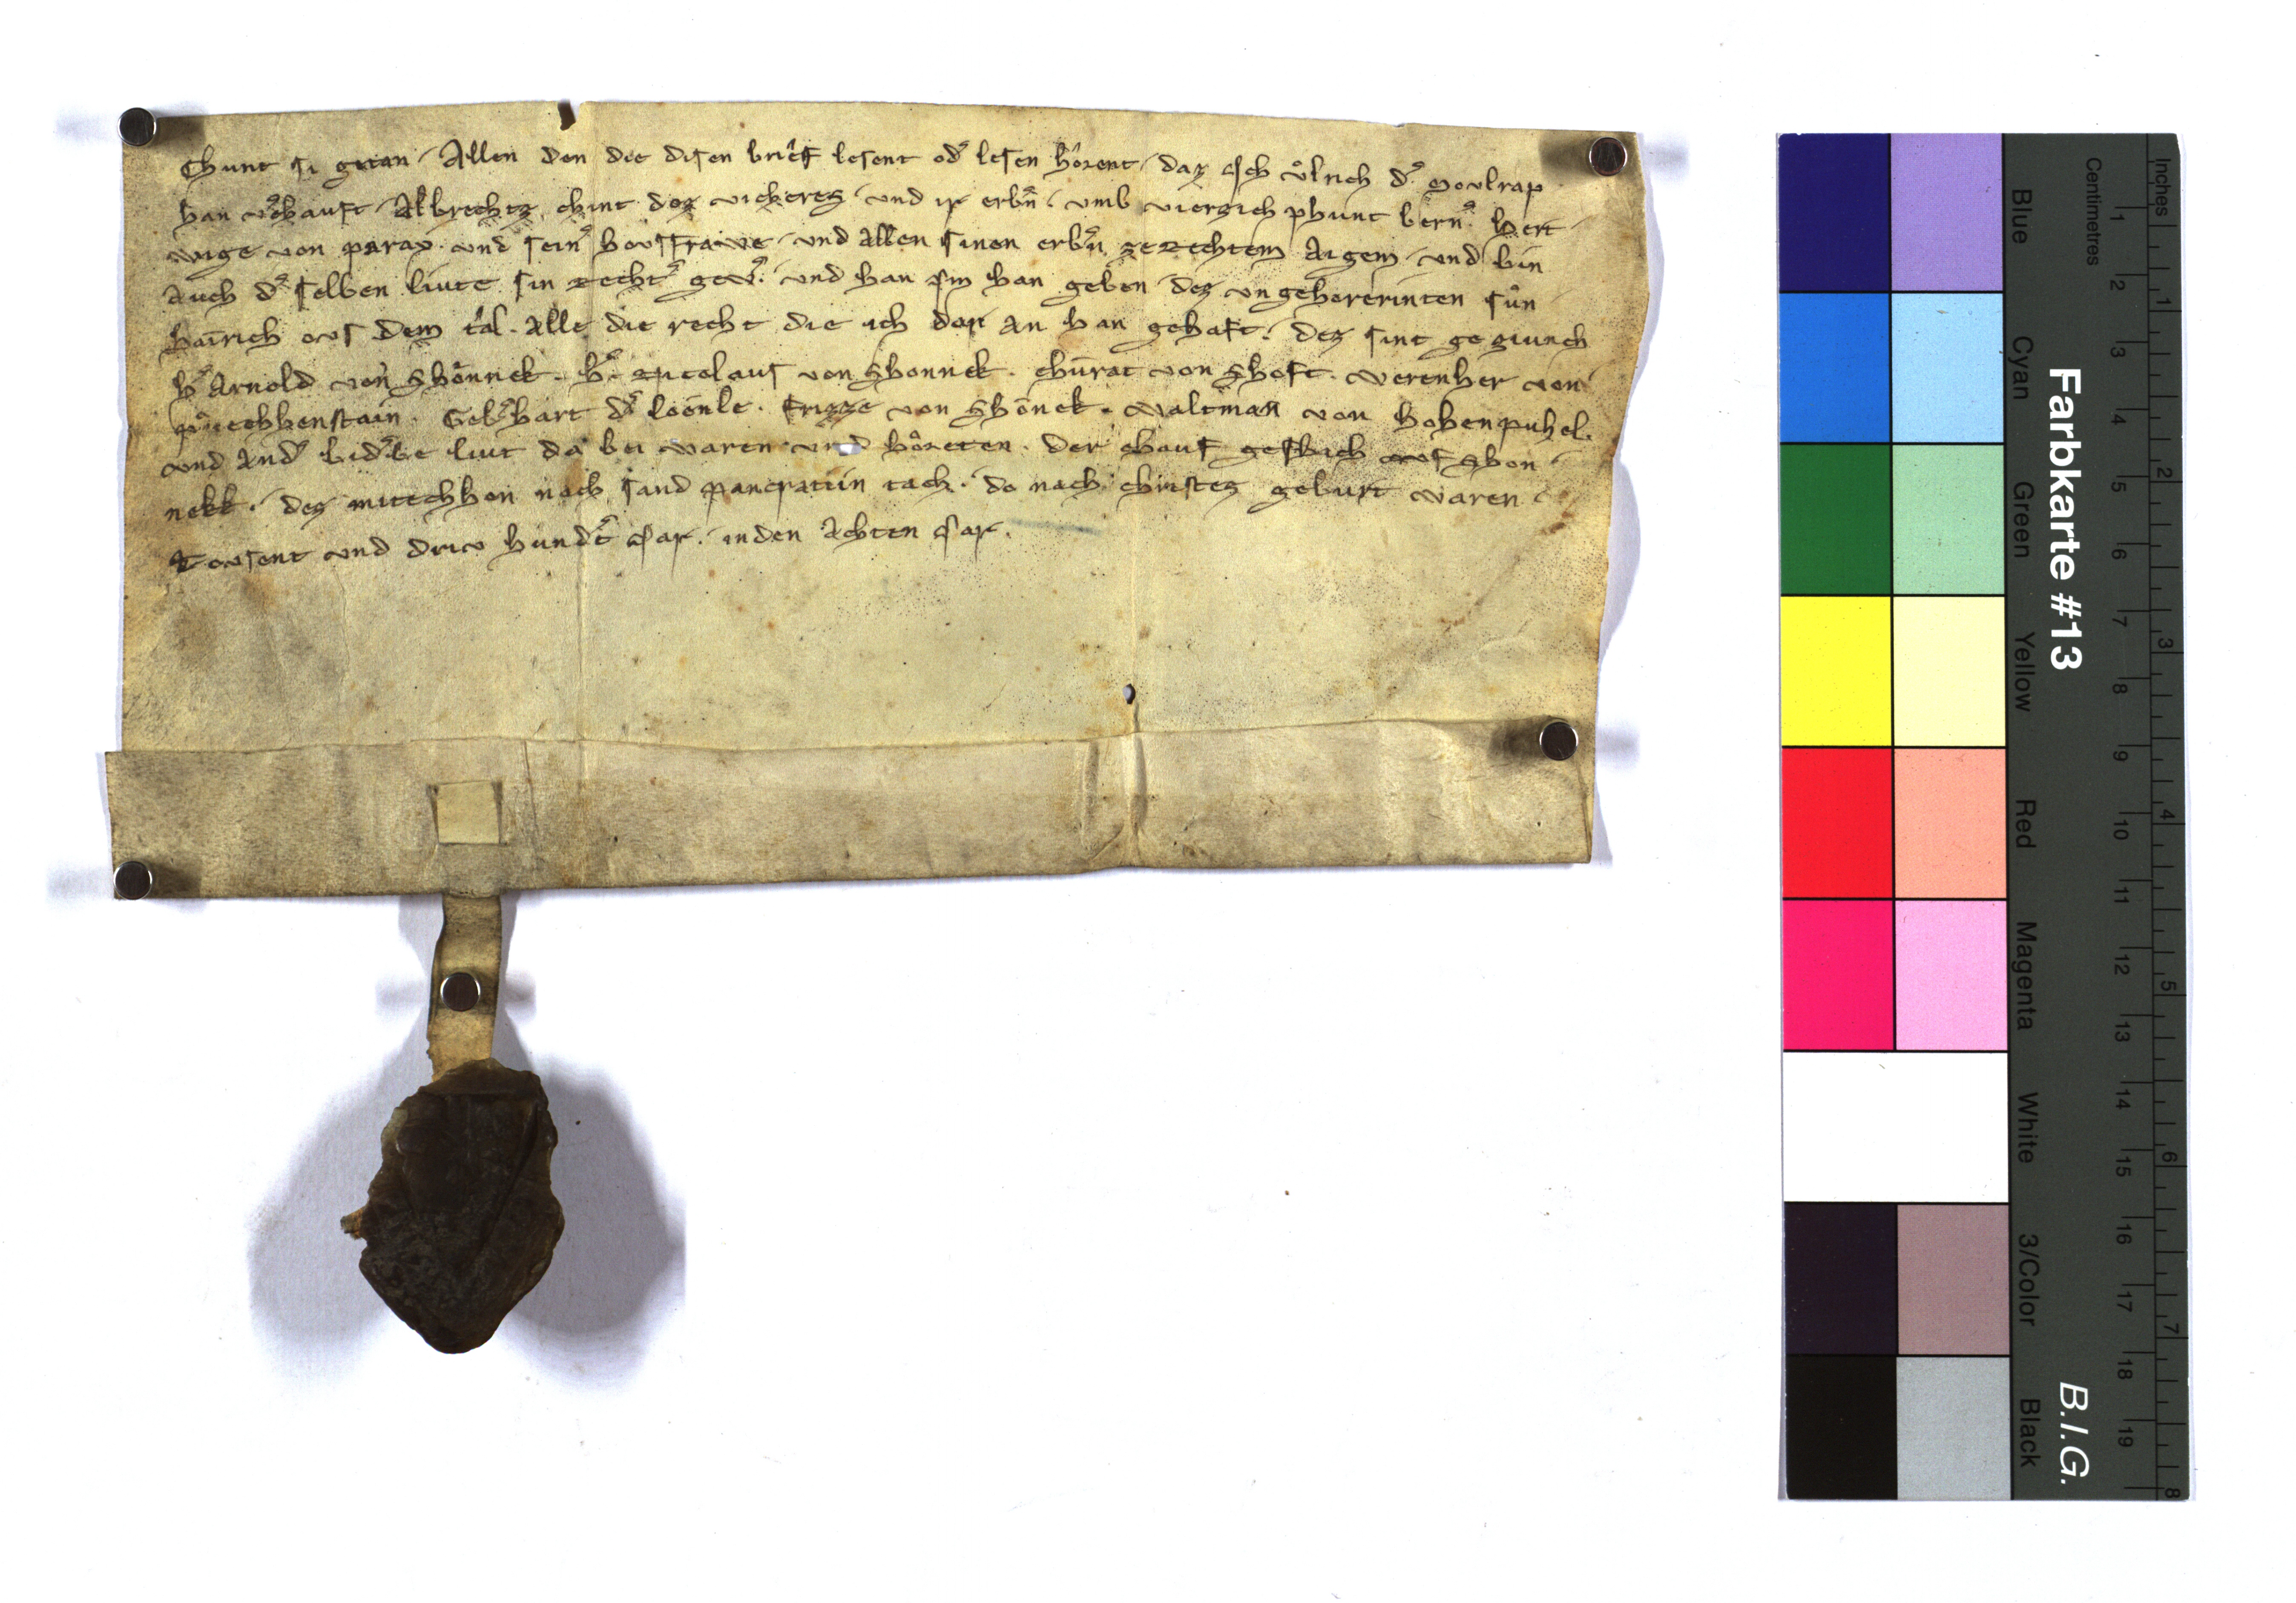 Chunt si getan. Allen den die disen brief lesent od͛ lesen hôrent. daz ich ůlrich d͛ Moulrap
han v͛chauft Albrechtz chint dez vickerez. und ir erb͛n. umb vierzich phunt bern͛. hert
wige von paray. und sein͛ housfrawe. und allen sinen erb͛n ze rechtem Aigem. und bin
auch d͛ selben liute sin recht͛ gew͛. und han im han geben dez ungehorerinten sůn
hainrich ous dem tal. Alle die recht die ich der An han gehaft. dez sint geziunch
h͛ Arnold von Shônnek. h͛. Nicolaus von Shonnek. Chůrat von Shoft. Werenher von
Geb͛hart d͛ Frizze von Shônek. Waltman von hohenpuhel.
und And͛ bid͛be liut da bei waren und hôreten. der chauf geschach ouf Shon
nekk. dez mitechhen nach sand pancratiin tach. do nach christez geburt waren
Tousent und driu hund͛t iar. in den Achten iar.
Farbkarte #13
B.I.G.
Centimetres
Inches
Blue
Cyan
Green
Yellow
Red
Magenta
White
3/Color
Black
1 2 3 4 5 6 7 8 9 10 11 12 13 14 15 16 17 18 19
1 2 3 4 5 6 7 8